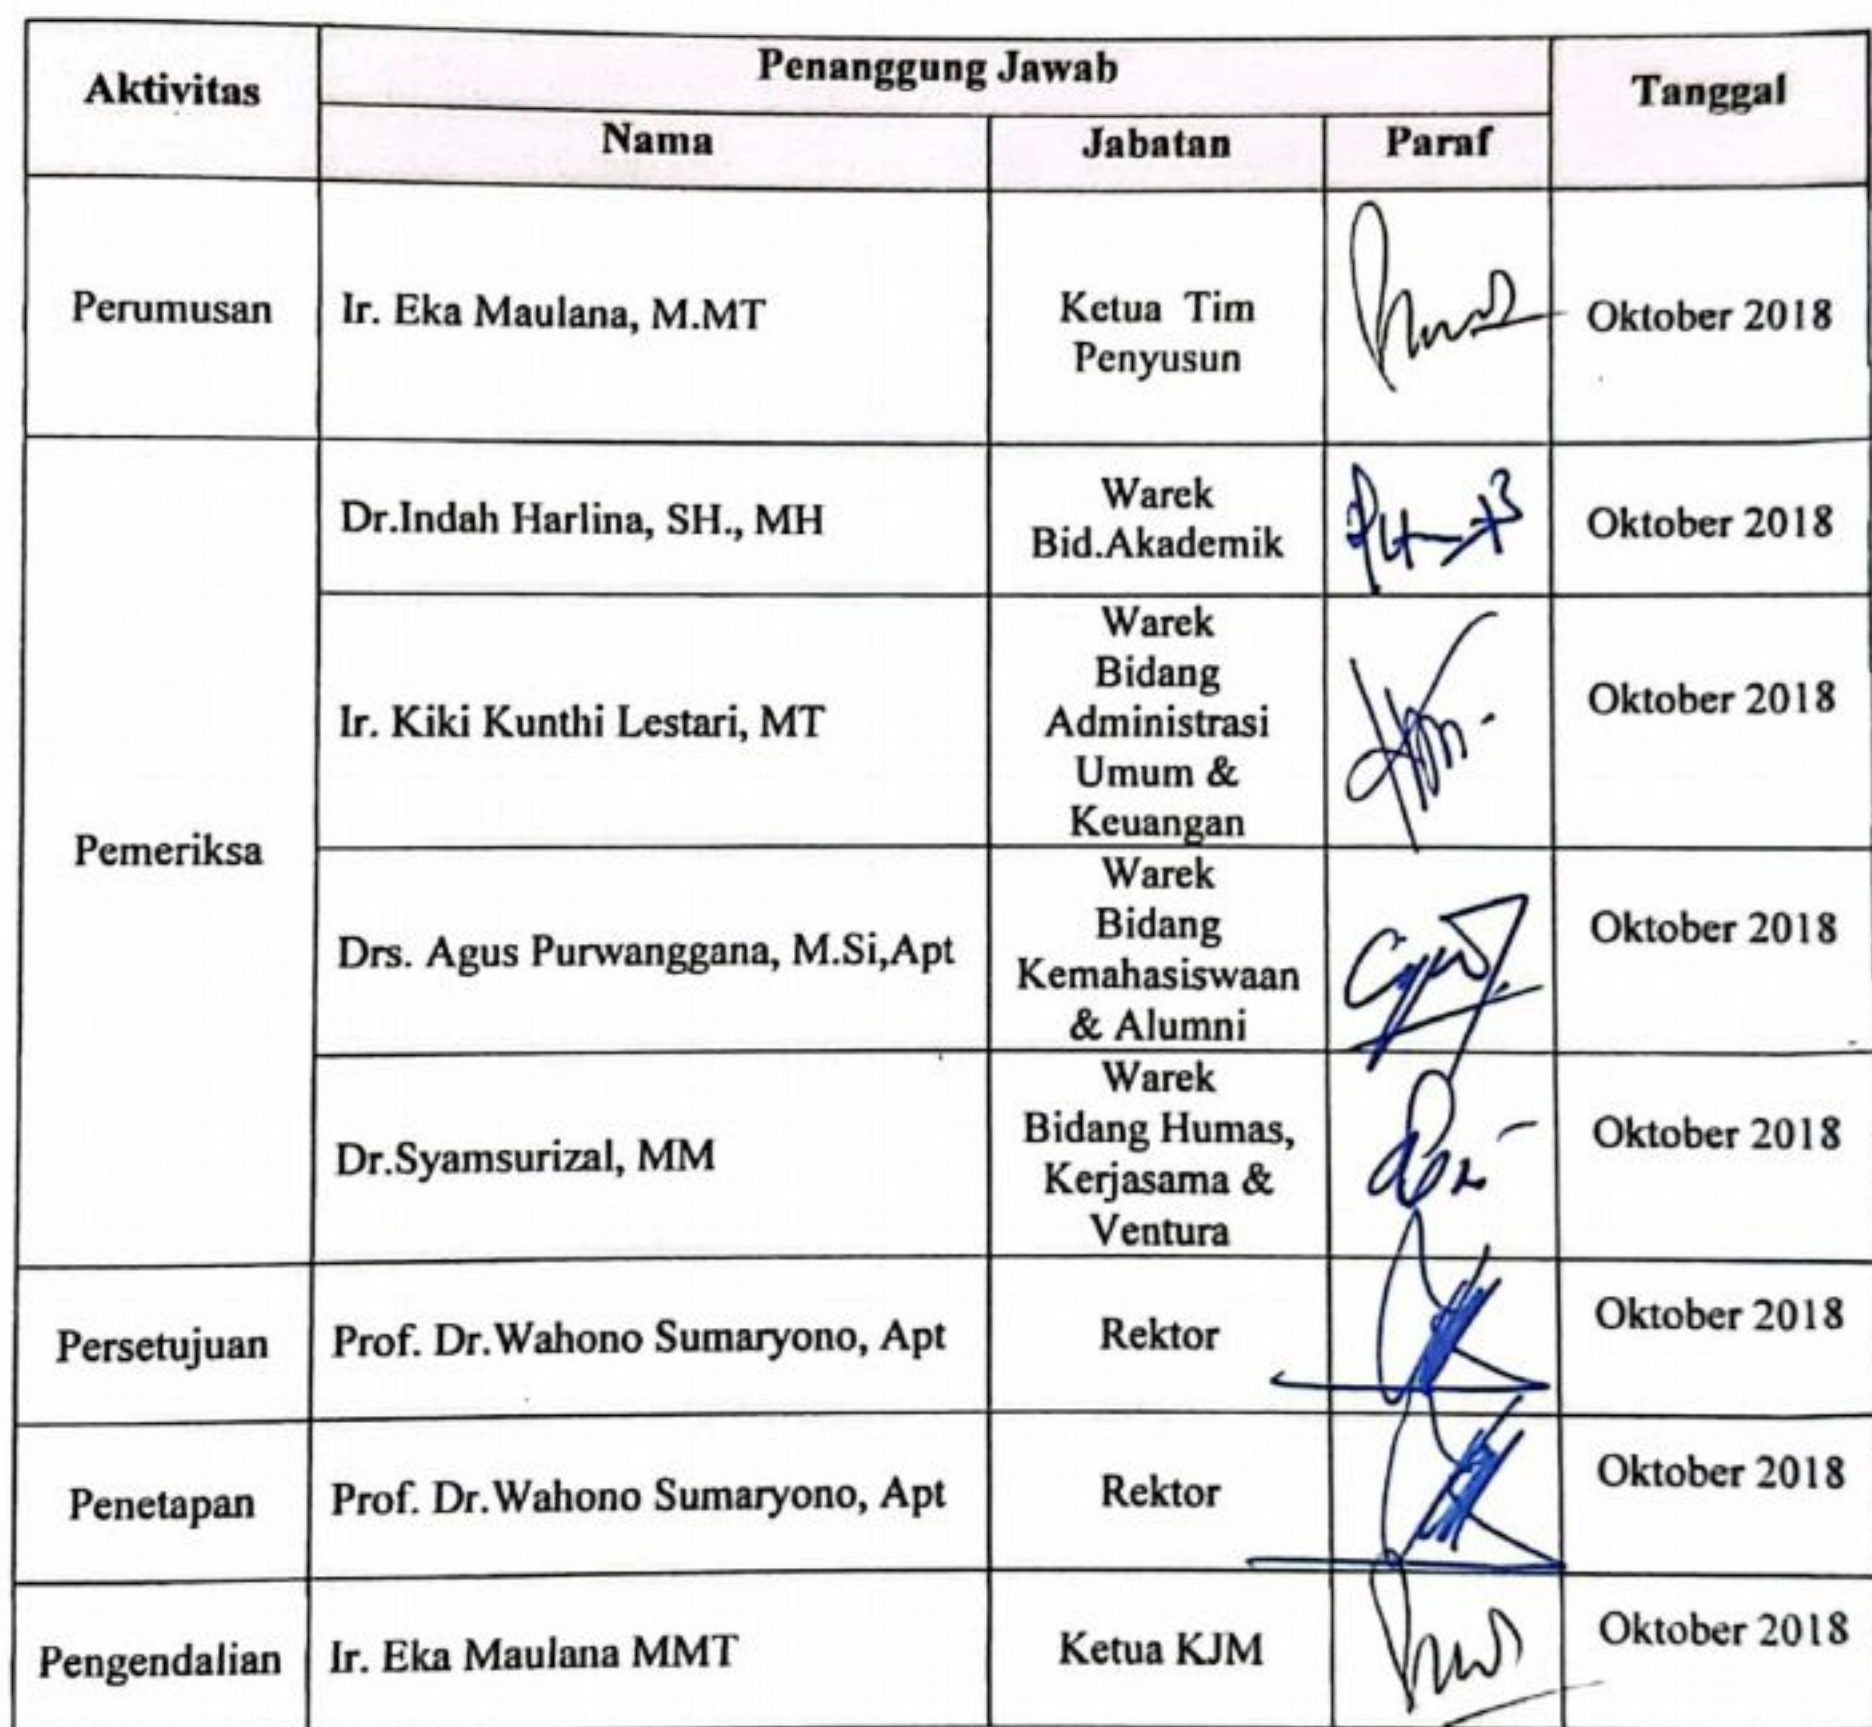 Aktivitas
Penanggung Jawab
Tanggal
Nama
Jabatan
Paraf
Perumusan
Ir. Eka Maulana, M.MT
Ketua Tim
Penyusun
Oktober 2018
Pemeriksa
Dr.Indah Harlina, SH., MH
Warek
Bid.Akademik
Oktober 2018
Ir. Kiki Kunthi Lestari, MT
Warek
Bidang
Administrasi
Umum &
Keuangan
Oktober 2018
Drs. Agus Purwanggana, M.Si,Apt
Warek
Bidang
Kemahasiswaan
& Alumni
Oktober 2018
Dr.Syamsurizal, MM
Warek
Bidang Humas,
Kerjasama &
Ventura
Oktober 2018
Persetujuan
Prof. Dr.Wahono Sumaryono, Apt
Rektor
Oktober 2018
Penetapan
Prof. Dr.Wahono Sumaryono, Apt
Rektor
Oktober 2018
Pengendalian
Ir. Eka Maulana MMT
Ketua KJM
Oktober 2018